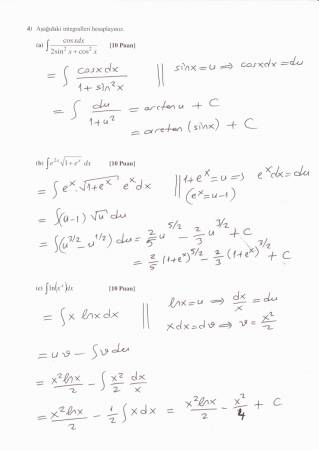 4) Aşağıdaki integralleri hesaplayınız.
(a) ∫ cosxdx / (2sin² x + cos² x) [10 Puan]
= ∫ cosxdx / (1+sin²x) || sinx=u ⇒ cosxdx=du
= ∫ du / (1+u²) = arctanu + C
= arctan(sinx) + C
(b) ∫e²ˣ√(1+eˣ) dx [10 Puan]
= ∫eˣ.√(1+eˣ) eˣdx || 1+eˣ=u ⇒ eˣdx=du
(eˣ=u-1)
= ∫(u-1)√u du
= ∫(u^(3/2) - u^(1/2)) du = 2/5 u^(5/2) - 2/3 u^(3/2) + C
= 2/5 (1+eˣ)^(5/2) - 2/3 (1+eˣ)^(3/2) + C
(c) ∫ln(xˣ)dx [10 Puan]
= ∫x lnxdx || lnx=u ⇒ dx/x = du
xdx=dv ⇒ v = x²/2
= uv - ∫vdu
= x²lnx/2 - ∫ x²/2 dx/x
= x²lnx/2 - 1/2 ∫xdx = x²lnx/2 - x²/4 + C